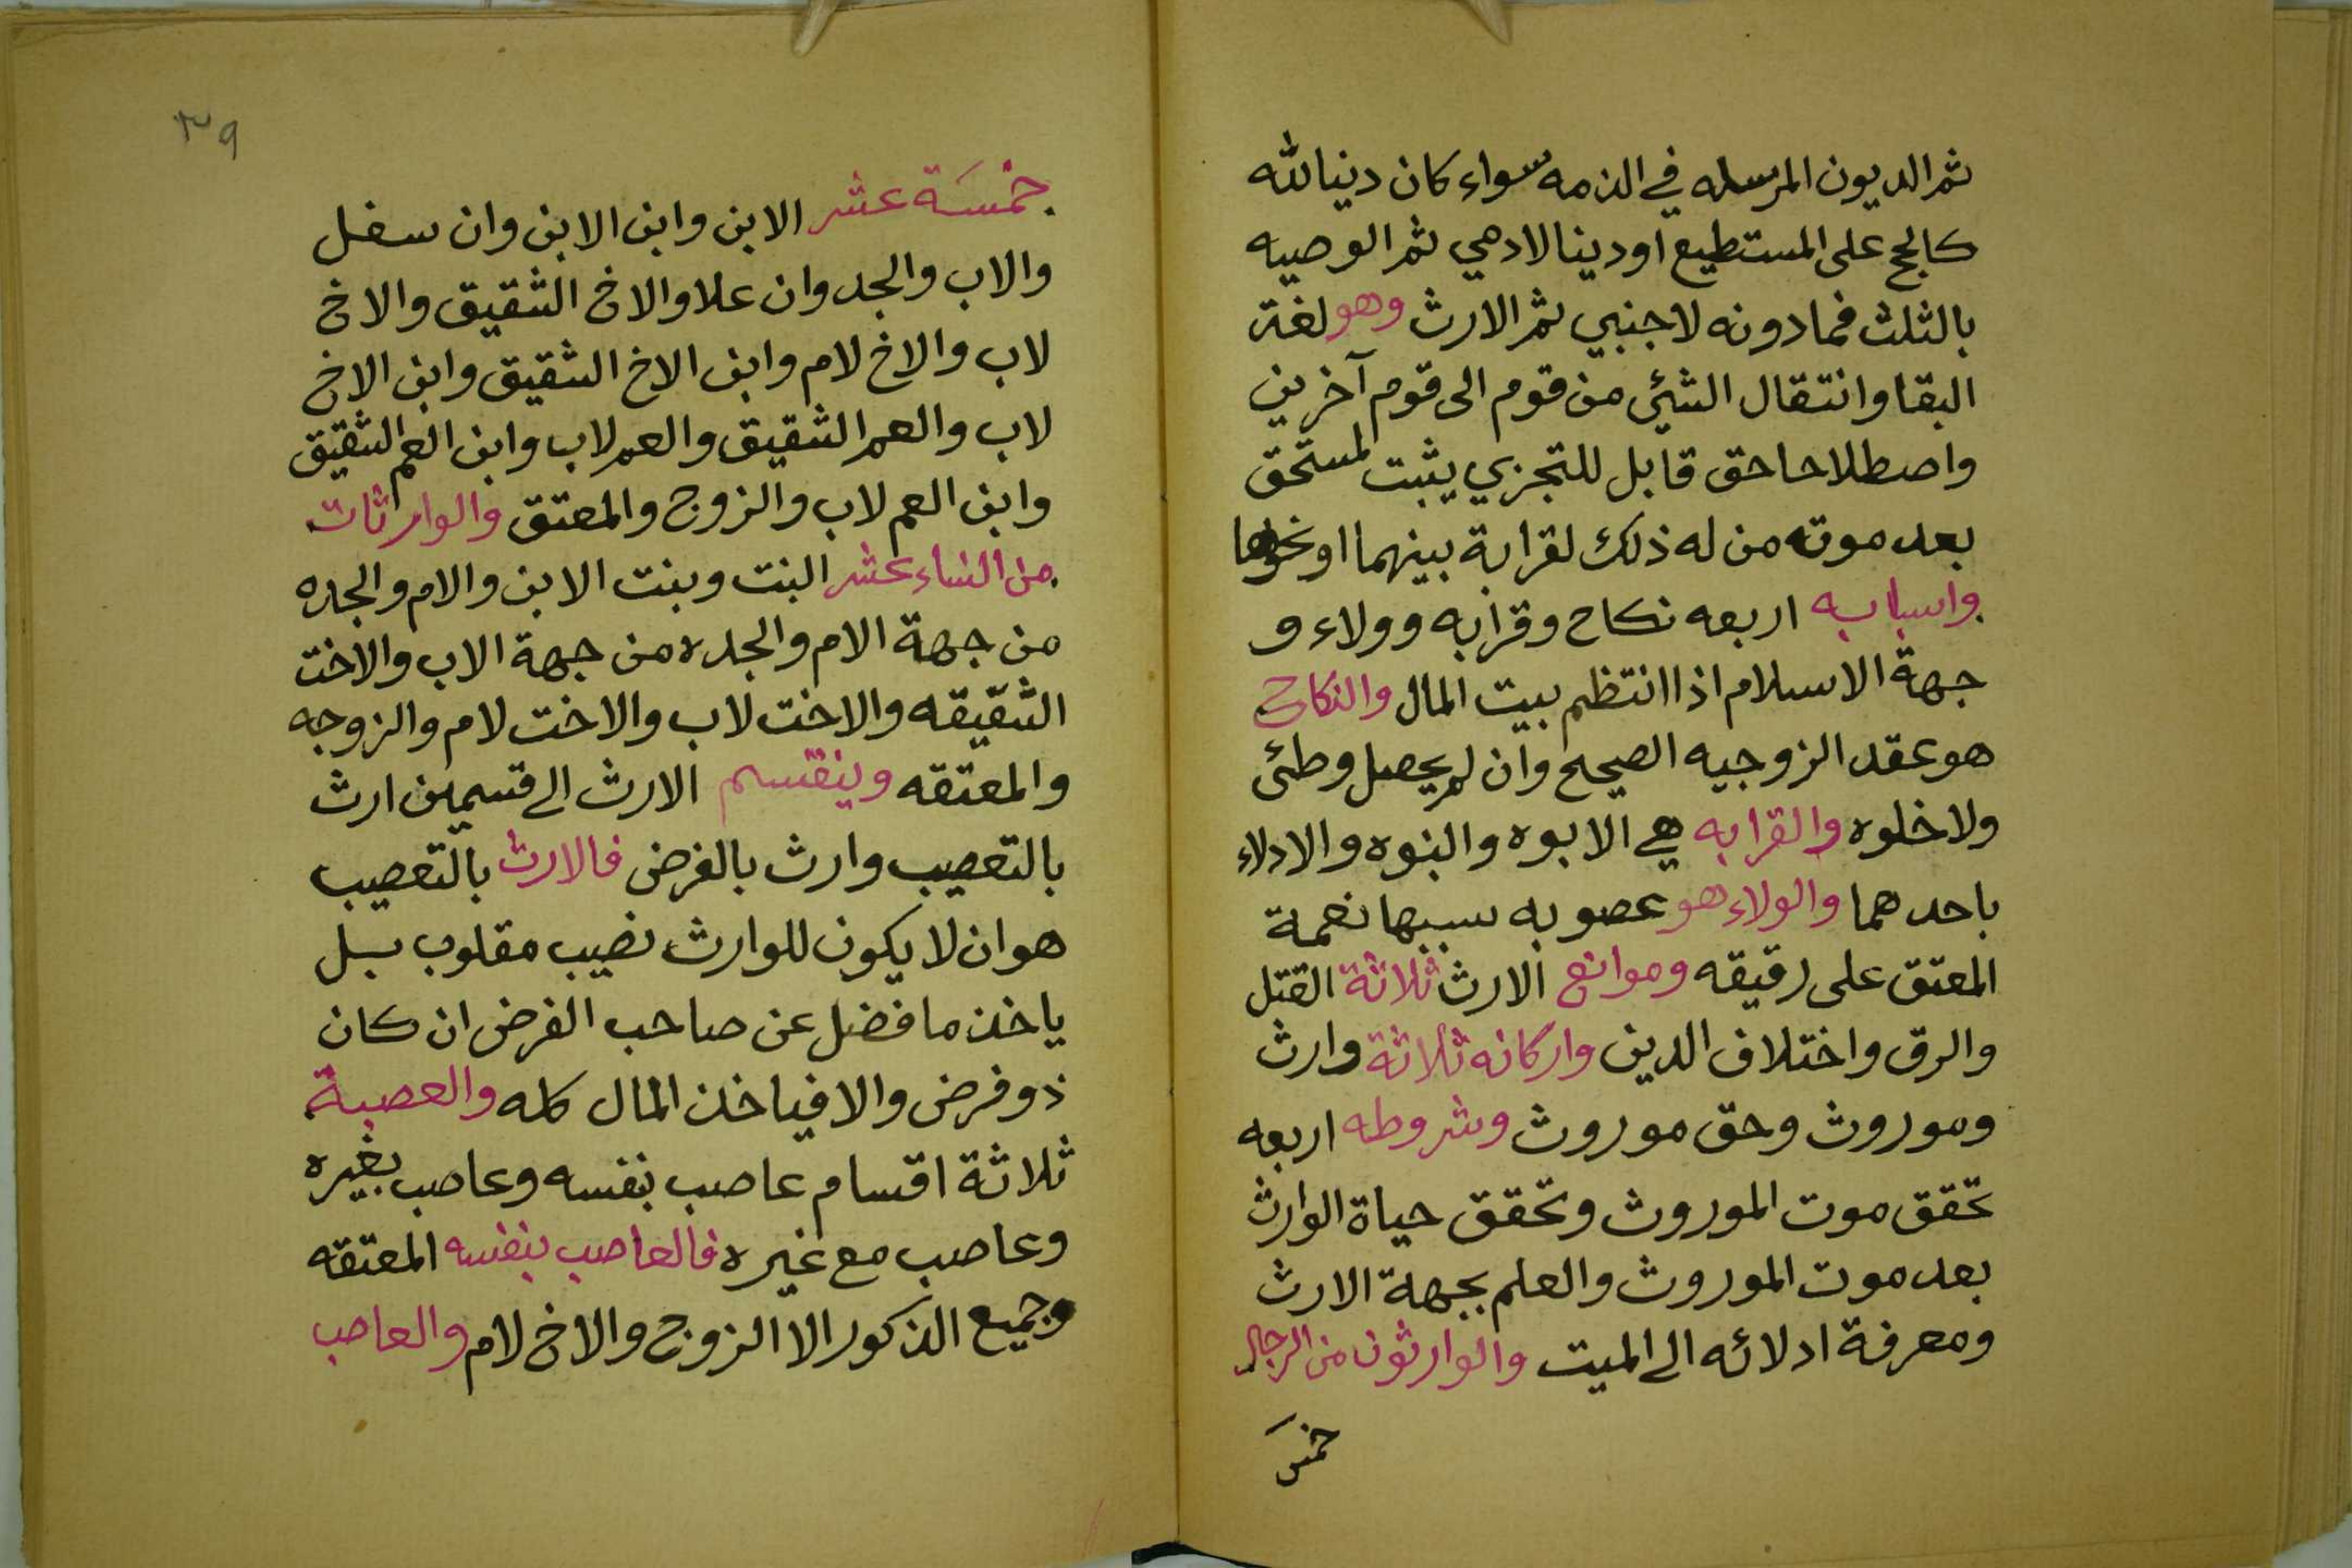 ثم الديون المرسله في الذمه سواء كان دينا لله
كالحج على المستطيع او دينا لادمي ثم الوصيه
بالثلث فمادونه لاجنبي ثم الارث وهو لغة
البقا وانتقال الشئي من قوم الى قوم آخرين
واصطلاحا حق قابل للتجزي يثبت لمستحق
بعد موته من له ذلك لقرابة بينهما او نحوها
واسبابه اربعه نكاح وقرابه وولاء و
جهة الاسلام اذا انتظم بيت المال والنكاح
هو عقد الزوجيه الصحيح وان لم يحصل وطئ
ولا خلوه والقرابه هي الابوه والبنوه والادلاء
باحدهما والولاء هو عصوبه سببها نعمة
المعتق على رقيقه وموانع الارث ثلاثة القتل
والرق واختلاف الدين واركانه ثلاثة وارث
وموروث وحق موروث وشروطه اربعه
تحقق موت الموروث وتحقق حياة الوارث
بعد موت الموروث والعلم بجهة الارث
ومعرفة ادلائه الى الميت والوارثون من الرجال
خمسَ
٣٩
خمْسَة عشر الابن وابن الابن وان سفل
والاب والجد وان علا والاخ الشقيق والاخ
لاب والاخ لام وابن الاخ الشقيق وابن الاخ
لاب والعم الشقيق والعم لاب وابن العم الشقيق
وابن العم لاب والزوج والمعتق والوارثات
من النساء عشر البنت وبنت الابن والام والجده
من جهة الام والجده من جهة الاب والاخت
الشقيقه والاخت لاب والاخت لام والزوجه
والمعتقه وينقسم الارث الى قسمين ارث
بالتعصيب وارث بالفرض فالارث بالتعصيب
هو ان لا يكون للوارث نصيب مقلوب بل
ياخذ ما فضل عن صاحب الفرض ان كان
ذو فرض والا فياخذ المال كله والعصبة
ثلاثة اقسام عاصب بنفسه وعاصب بغيره
وعاصب مع غيره فالعاصب بنفسه المعتقه
وجميع الذكور الا الزوج والاخ لام والعاصب